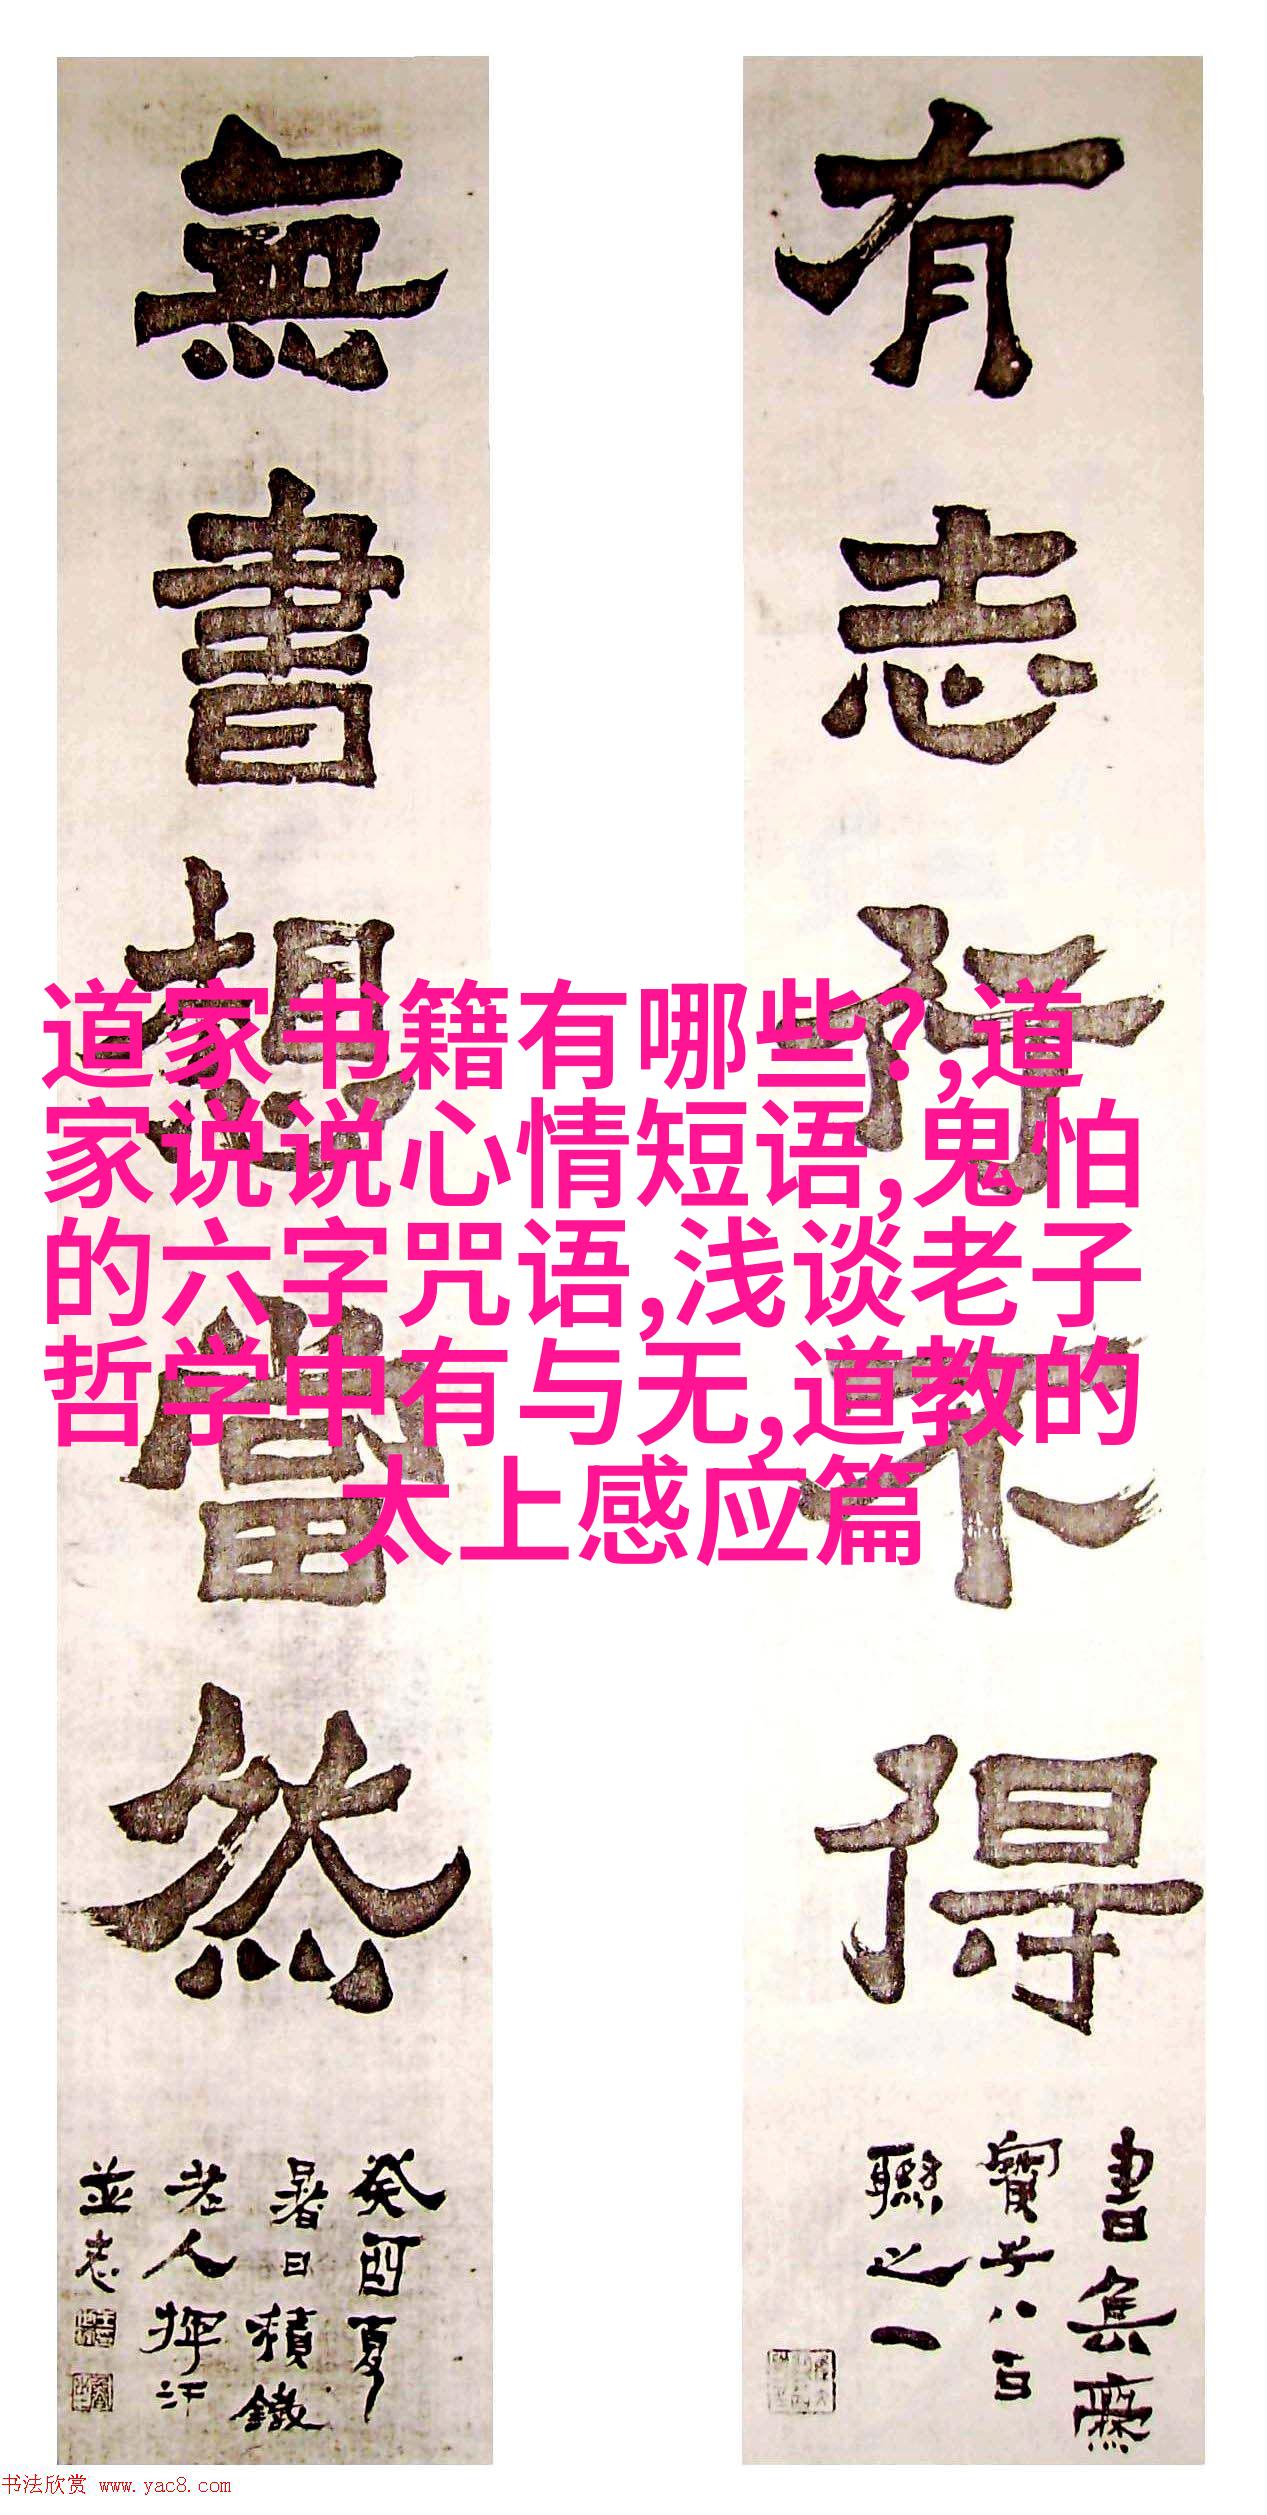 有志行不得
書
寶子八百
聯之一
無書想當然
癸酉夏
暑日積鐵
老人揮汗
並志
道家书籍有哪些?,道
家说说心情短语,鬼怕
的六字咒语,浅谈老子
哲学中有与无,道教的
太上感应篇
书法欣赏 www.yac8.com